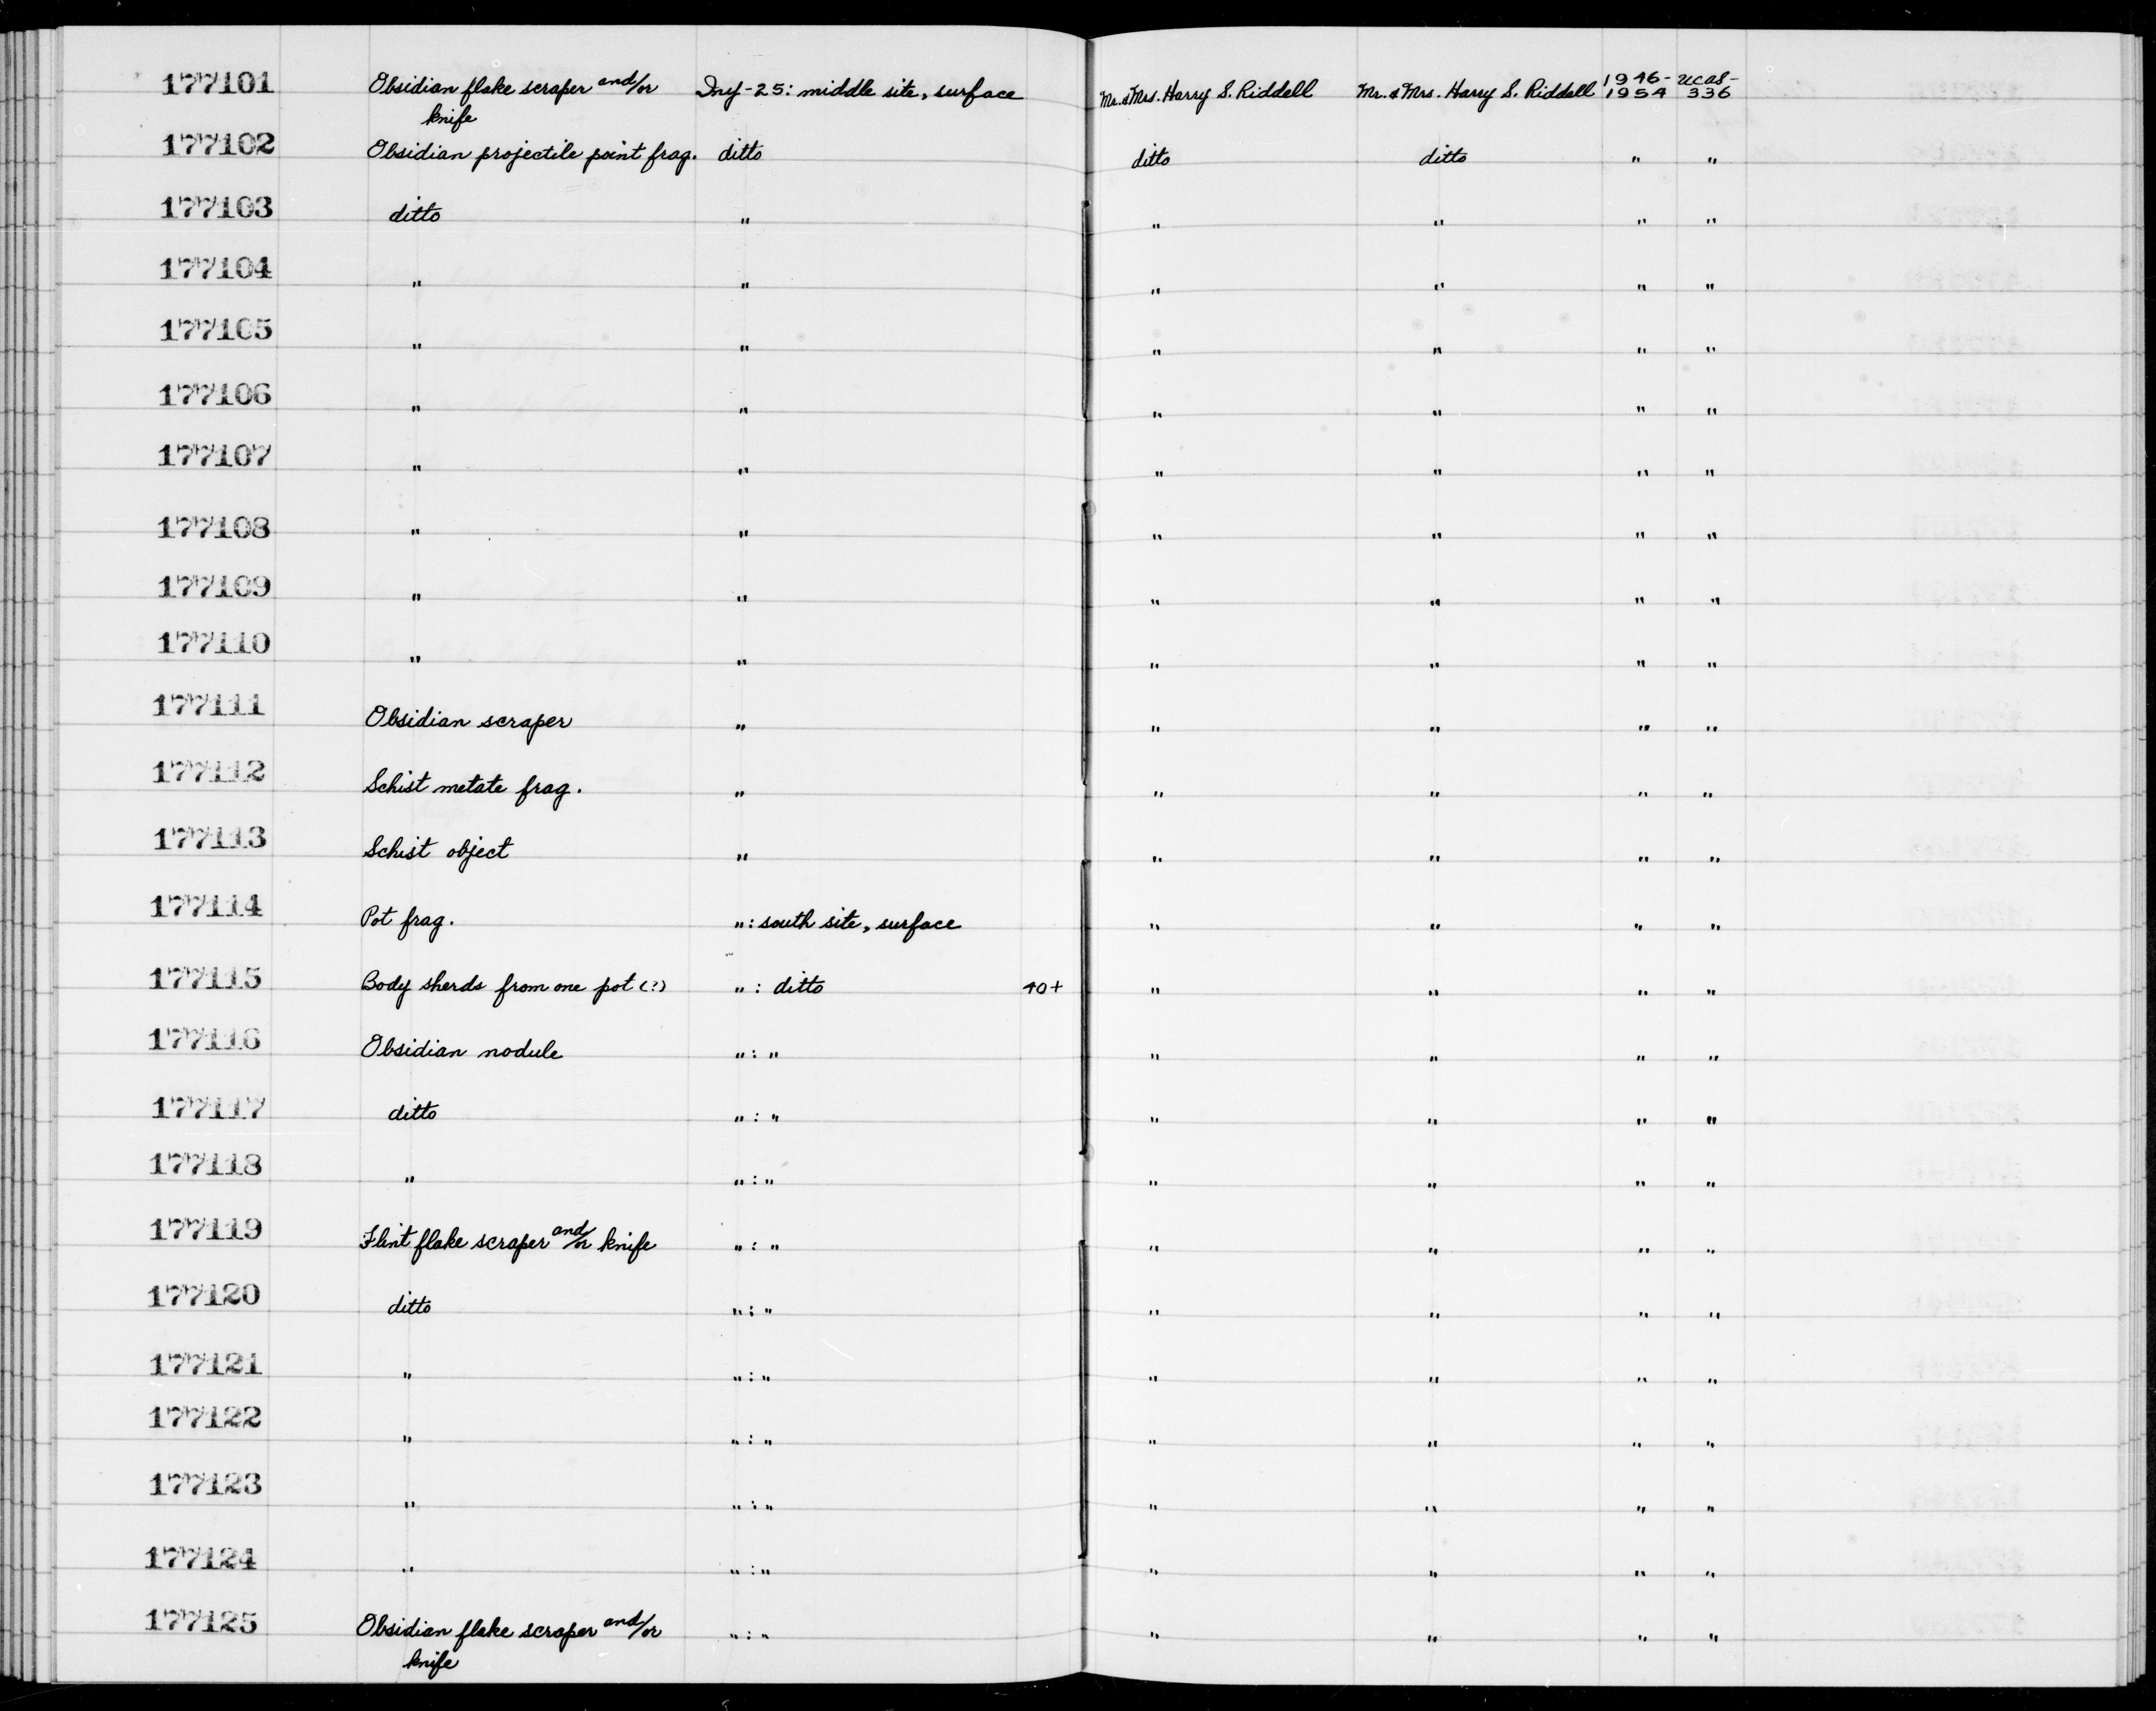 177101 Obsidian flake scraper and/or knife Iny-25: middle site, surface Mr. & Mrs. Harry S. Riddell Mr. & Mrs. Harry S. Riddell 1946-1954 UCAS-336
177102 Obsidian projectile point frag. ditto ditto ditto " "
177103 ditto " " " " "
177104 " " " " " "
177105 " " " " " "
177106 " " " " " "
177107 " " " " " "
177108 " " " " " "
177109 " " " " " "
177110 " " " " " "
177111 Obsidian scraper " " " " "
177112 Schist metate frag. " " " " "
177113 Schist object " " " " "
177114 Pot frag. " : south site, surface " " " "
177115 Body sherds from one pot (?) " : ditto 40+ " " " "
177116 Obsidian nodule " : " " " " "
177117 ditto " : " " " " "
177118 " " : " " " " "
177119 Flint flake scraper and/or knife " : " " " " "
177120 ditto " : " " " " "
177121 " " : " " " " "
177122 " " : " " " " "
177123 " " : " " " " "
177124 " " : " " " " "
177125 Obsidian flake scraper and/or knife " : " " " " "